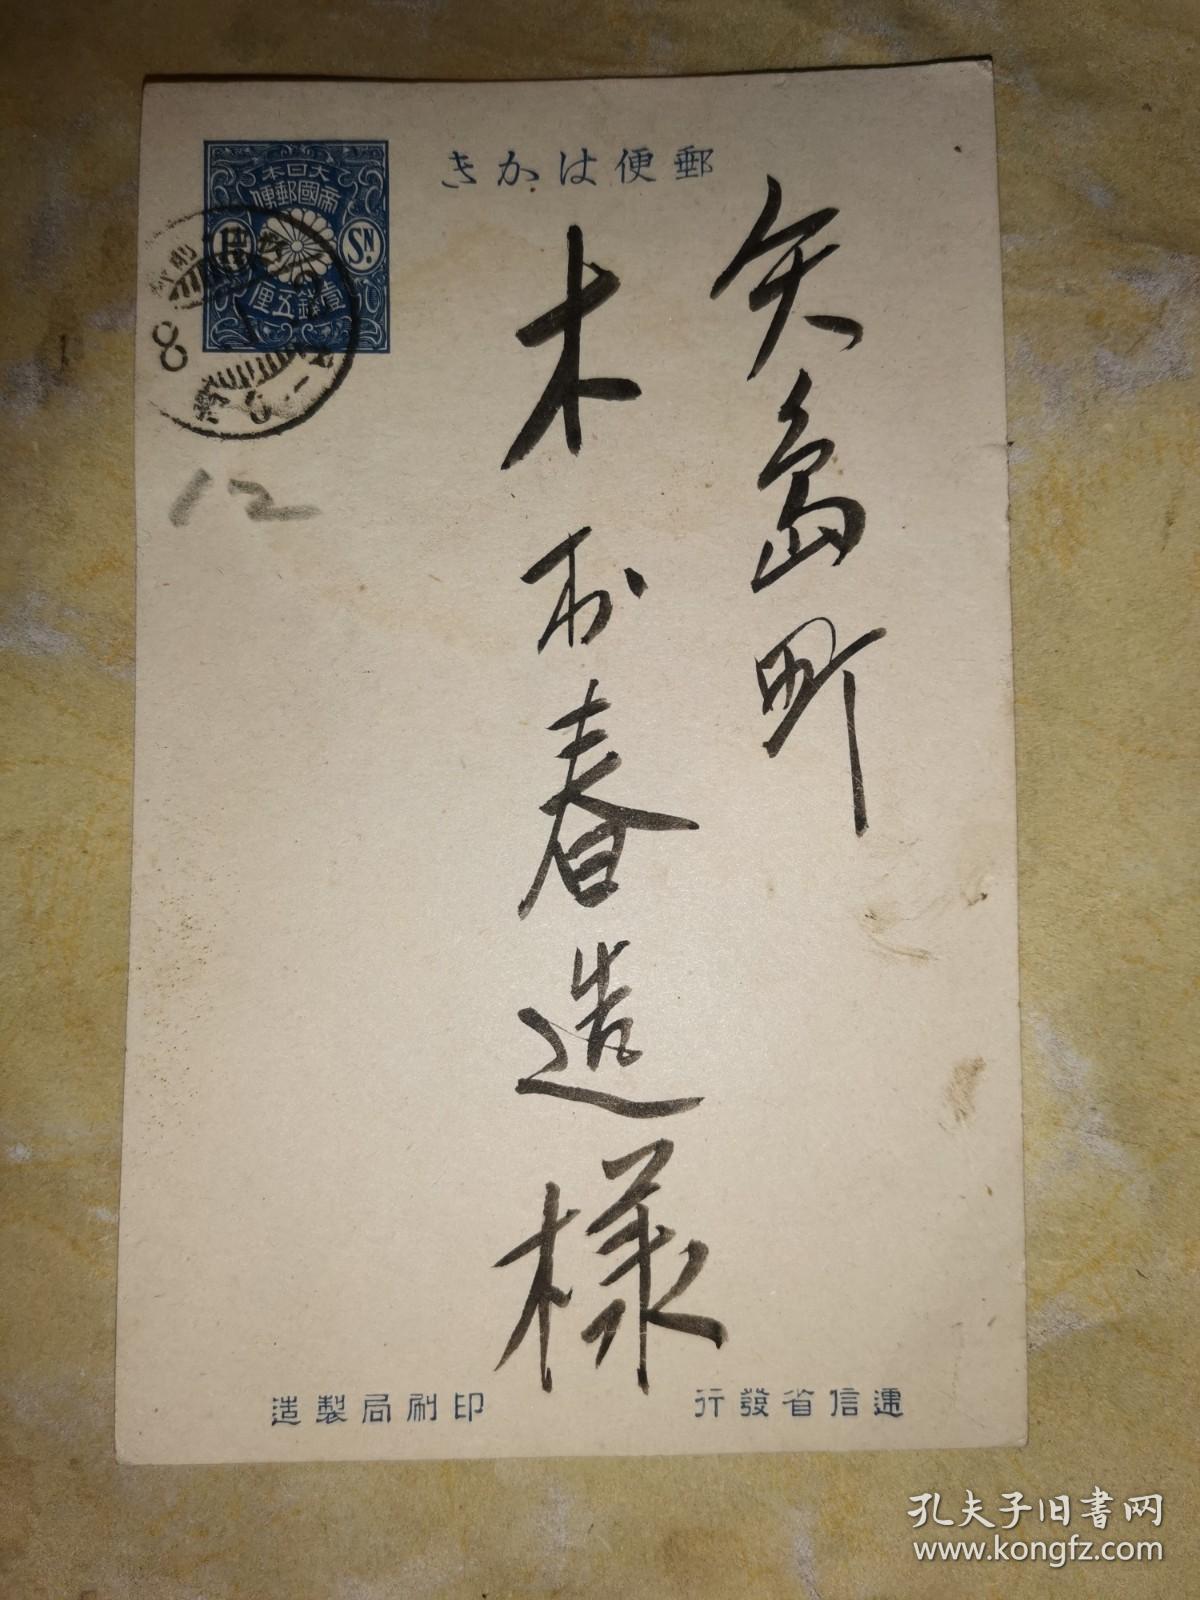 郵便はかき
大日本
帝國郵便
1½
SN.
壹錢五厘
8
12
矢島町
木村春造様
遞信省發行
印刷局製造
孔夫子旧书网
www.kongfz.com